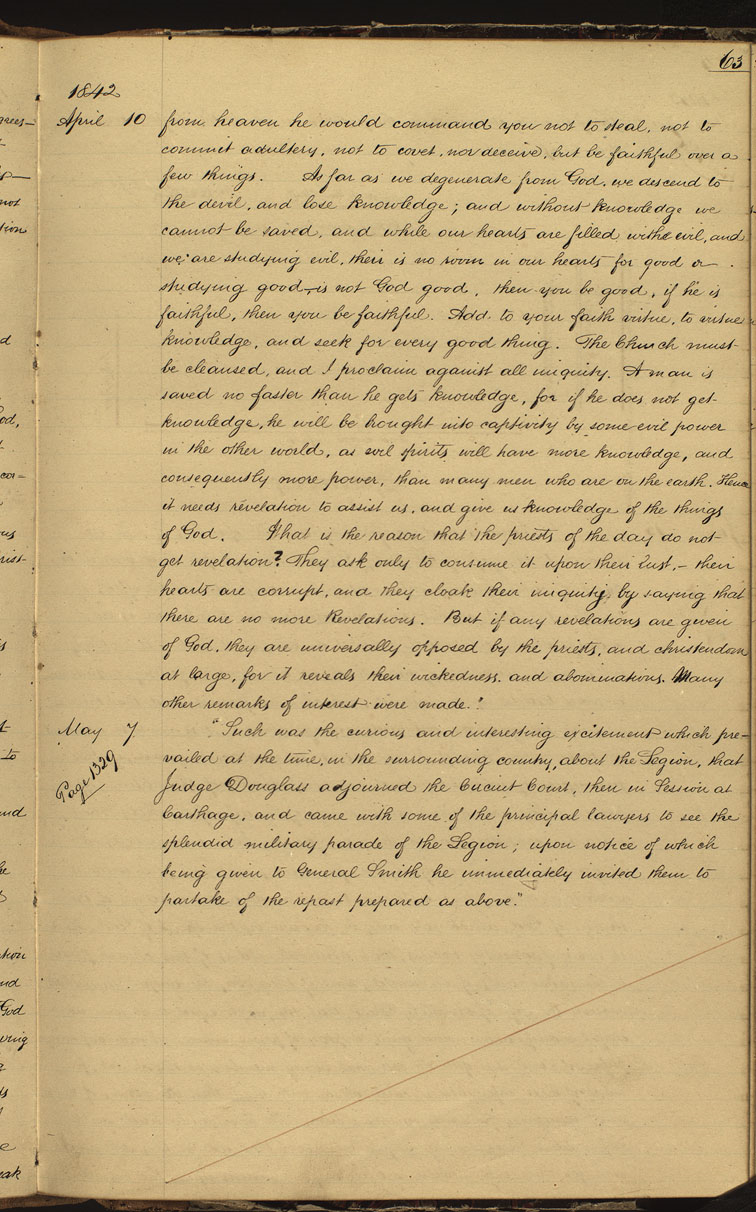 63
1842
April 10 from heaven he would command you not to steal, not to
commit adultery, not to covet, nor deceive, but be faithful over a
few things. As far as we degenerate from God, we descend to
the devil, and lose knowledge; and without knowledge we
cannot be saved, and while our hearts are filled with evil, and
we are studying evil, their is no room in our hearts for good or
studying good, is not God good, then you be good, if he is
faithful, then you be faithful. Add to your faith virtue, to virtue
knowledge, and seek for every good thing. The Church must
be cleansed, and I proclaim against all iniquity. A man is
saved no faster than he gets knowledge, for if he does not get
knowledge, he will be brought into captivity by some evil power
in the other world, as evil spirits will have more knowledge, and
consequently more power, than many men who are on the earth. Hence
it needs revelation to assist us, and give us knowledge of the things
of God. What is the reason that the priests of the day do not
get revelation? They ask only to consume it upon their lust, – their
hearts are corrupt, and they cloak their iniquity, by saying that
there are no more Revelations. But if any revelations are given
of God, they are universally opposed by the priests, and christendom
at large, for it reveals their wickedness, and abominations. Many
other remarks of interest were made."
May 7 "Such was the curious and interesting excitement which pre-
Page 1329
vailed at the time, in the surrounding country, about the Legion, that
Judge Douglass adjourned the Circuit Court, then in Session at
Carthage, and came with some of the principal lawyers to see the
splendid military parade of the Legion; upon notice of which
being given to General Smith he immediately invited them to
partake of the repast prepared as above."